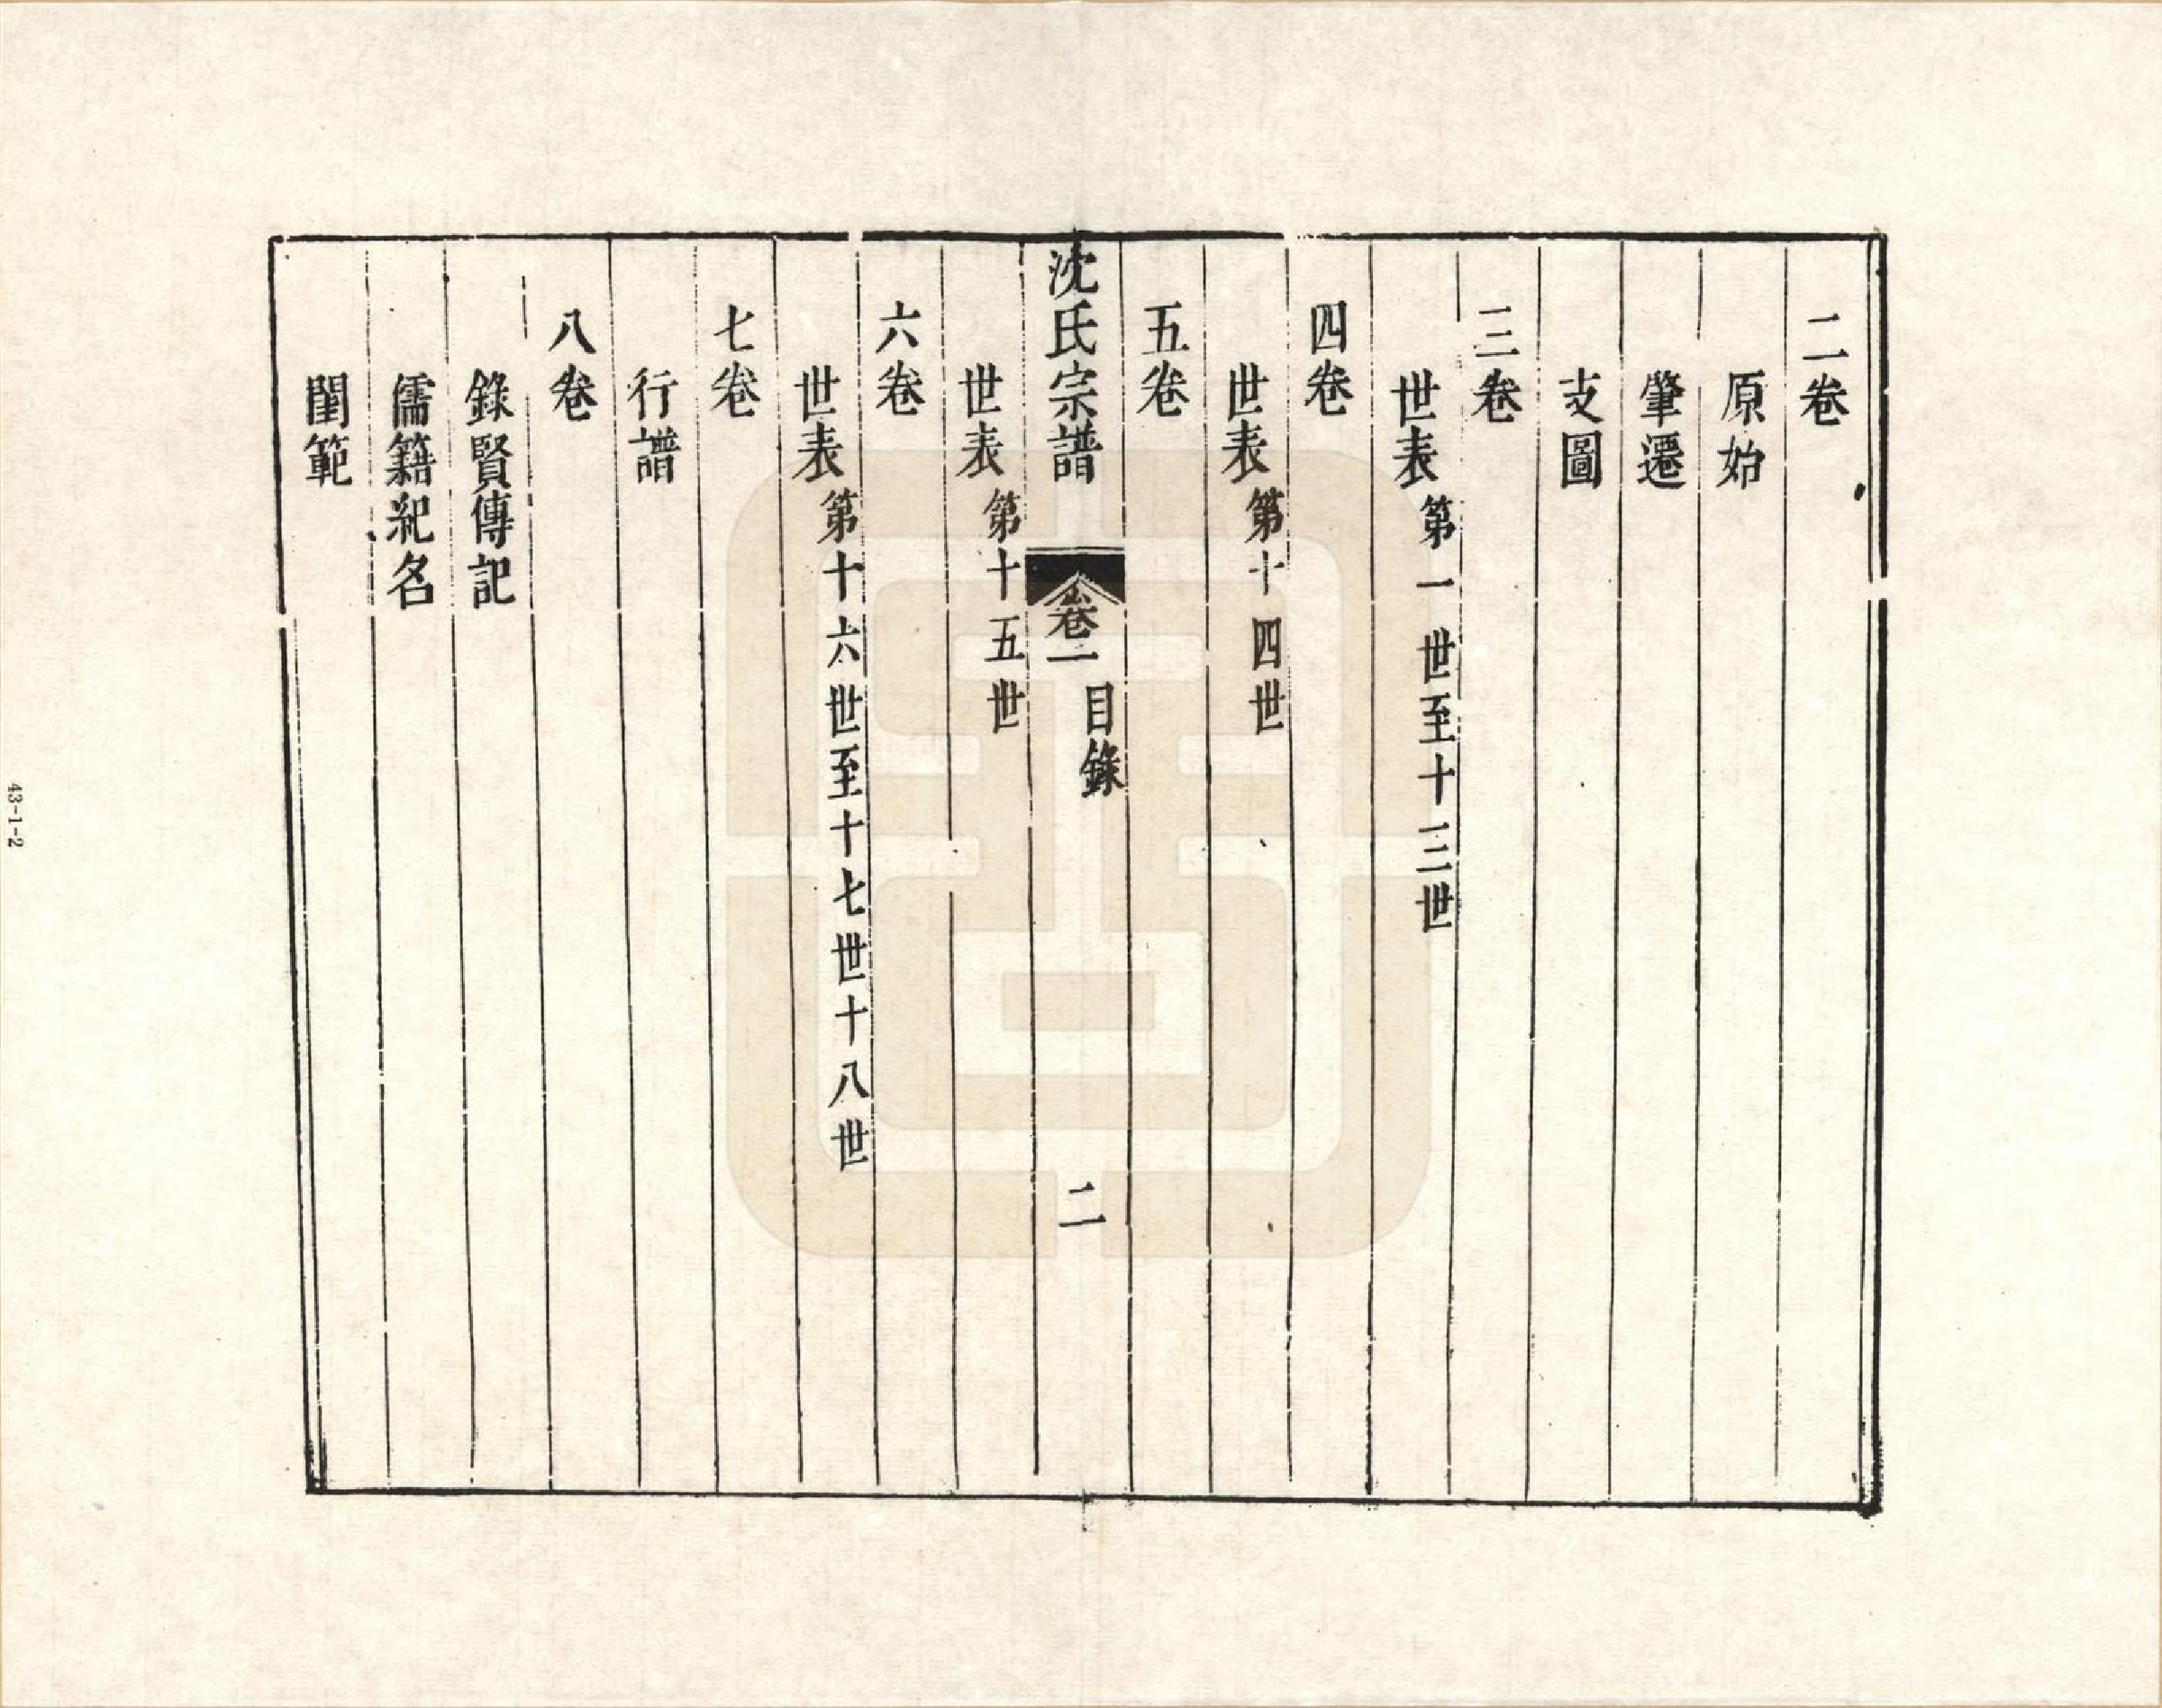 二卷
原始
肇遷
支圖
三卷
世表第一世至十三世
四卷
世表第十四世
五卷
沈氏宗譜 卷一 目錄 二
世表第十五世
六卷
世表第十六世至十七世十八世
七卷
行譜
八卷
錄賢傳記
儒籍紀名
閨範
43-1-2